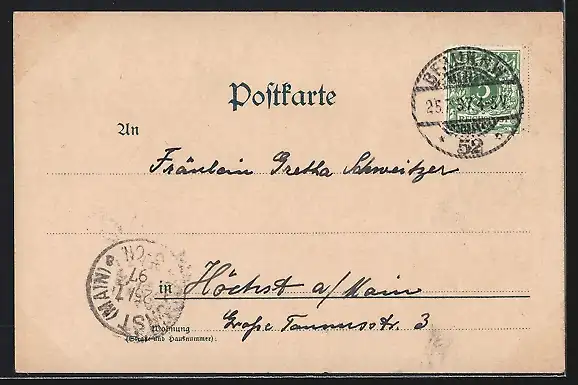 Postkarte
BERLIN.N.W.
5
25.7.97.4-5N.
* 52
An
Fräulein Gretha Schweitzer
HÖCHST (MAIN)
25/7
97
in Höchst a/Main
Wohnung
(Straße und Hausnummer):
Große Taunusstr. 3